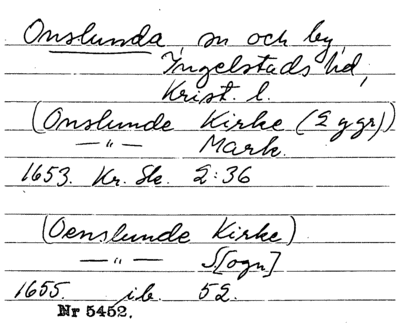 Onslunda, sn och by,
Ingelstads hd,
Krist. l.
(Onslunde Kirke (2 ggr))
—"— Mark.
1653. Kr. Sk. 2:36
(Oenslunde Kirke)
—"— S[ogn]
1655. ib. 52.
Nr 5452.